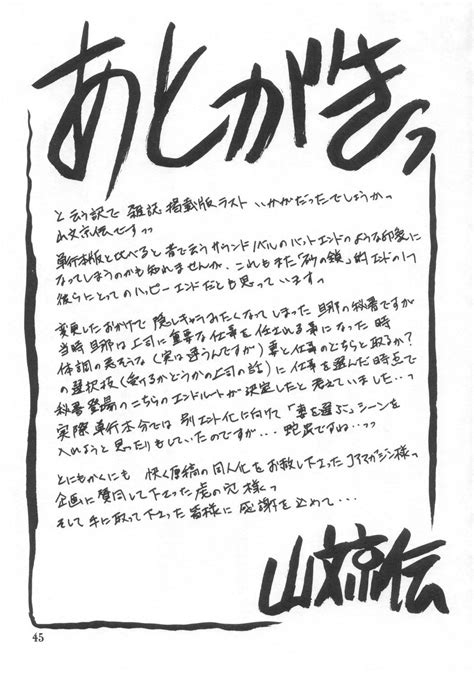 あとがきっ
と云う訳で 雑誌掲載版ラスト いかがだったでしょうかっ
山文京伝ですっっ
単行本版と比べると昔で云うサウンドノベルのバットエンドのような印象に
なってしまうのかも知れませんが、これもまた「砂の鎖」的エンドの1つ
彼らにとってのハッピーエンドだとも思っていますっ
変更したおかげで隠しキャラみたくなってしまった旦那の秘書ですが
当時旦那は上司に重要な仕事を任される事になった時
体調の悪そうな(実は違うんですが)妻と仕事のどちらと取るか?
の選択肢(受けるかどうかの上司の話)に仕事を選んだ時点で
秘書登場のこちらのエンドルートが決定したと考えていました…っ
実際単行本分では 別エンド化に向けて「妻を選ぶ」シーンを
入れようと思ったりもしていたのですが… 蛇足ですね…っっ
とにもかくにも 快く原稿の同人化をお赦し下さったコアマガジン様っ
企画に賛同して下さった虎の穴様っ
そして手に取って下さった皆様に感謝を込めて…
山文京伝
45